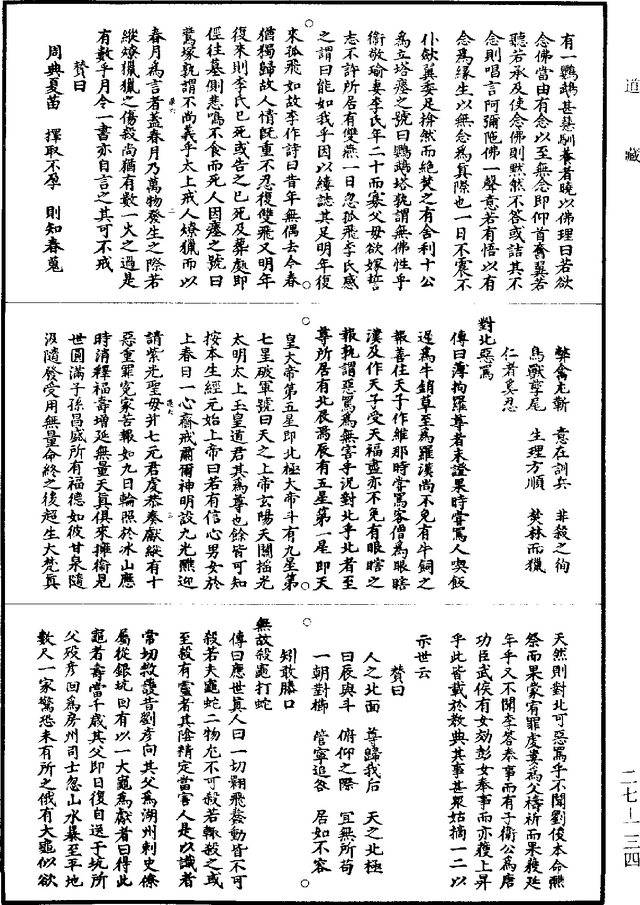 道藏
有一鸚鵡甚慧馴養者曉以佛理曰若欲
念佛當由有念以至無念即仰首奮翼若
聽若承及使念佛則默然不答或詰其不
念則唱言阿彌陁佛一聲意若有悟以有
念為緣生以無念為真際也一日不震不
仆歛翼委足掩然而絕焚之有舍利十公
為立塔瘞之號曰鸚鵡塔孰謂無佛性乎
衛敬瑜妻李氏年二十而寡父母欲嫁誓
志不許所居有雙燕一日忽孤飛李氏感
之謂曰能如我乎因以縷誌其足明年復
來孤飛如故李作詩曰昔年無偶去今春
猶獨歸故人情既重不忍復雙飛又明年
復來則李氏已死或告之已死及葬處即
徑往墓側悲鳴不食而死人因瘞之號曰
鷰塚孰謂不尚義乎太上戒人燎獵而以
春月為言者蓋春月乃萬物發生之際若
縱燎獵獵之傷殺尚猶有數一火之過是
有數乎月令一書亦自言之其可不戒
贊曰
周典夏苗 擇取不孕 則知春蒐
弊禽尤靳 意在訓兵 非殺之徇
鳥獸孳尾 生理方順 焚林而獵
仁者奚忍
對北惡罵
傳曰薄拘羅尊者未證果時嘗罵人喫飯
遲為牛銷草至為羅漢尚不免有牛飼之
報善住天子作維那時嘗罵客僧為眼瞎
漢及作天子受天福盡亦不免有眼瞎之
報孰謂惡罵為無害乎況對北乎北者至
尊所居有北辰焉辰有五星第一星即天
皇大帝第五星即北極大帝斗有九星第
七星破軍號曰天之上帝玄陽天關摇光
太明太上玉皇道君其為尊也餘皆可知
按本生經元始上帝曰若有信心男女於
上春日一心齋戒肅爾神明設九光醮迎
請紫光聖母并七元君虔恭奏獻縱有十
惡重罪冤家苦報如九日輪照於冰山應
時消釋福壽增延無量天真俱來擁衛見
世圓滿子孫昌盛所有福德如彼甘泉隨
汲隨發受用無量命終之後超生大梵真
天然則對北可惡罵乎不聞劉俊本命醮
祭而果蒙宥罪虔婁為父禱祈而果獲延
年乎又不聞李荅奉事而有子衛公為唐
功臣武侯有女効彭女奉事而亦獲上昇
乎此皆載於教典其事甚眾姑摘一二以
示世云
贊曰
人之北面 尊歸我后 天之北極
曰辰與斗 俯仰之際 宜無所苟
一朝對㭼 管寧追咎 居如不容
矧敢勝口
無故殺龜打蛇
傳曰應世真人曰一切翾飛蠢動皆不可
殺若夫龜蛇二物尤不可殺若輙殺之或
至殺有靈者其陰精定當害人是以識者
常切救護昔劉彥向其父為湖州刺史僚
屬從銀坑回有以一大龜為獻者曰得此
龜者壽當千歲其父即日復自送于坑所
父歿彥回為房州司士忽山水暴至平地
數尺一家驚恐未有所之俄有大龜似欲
二七—一三四